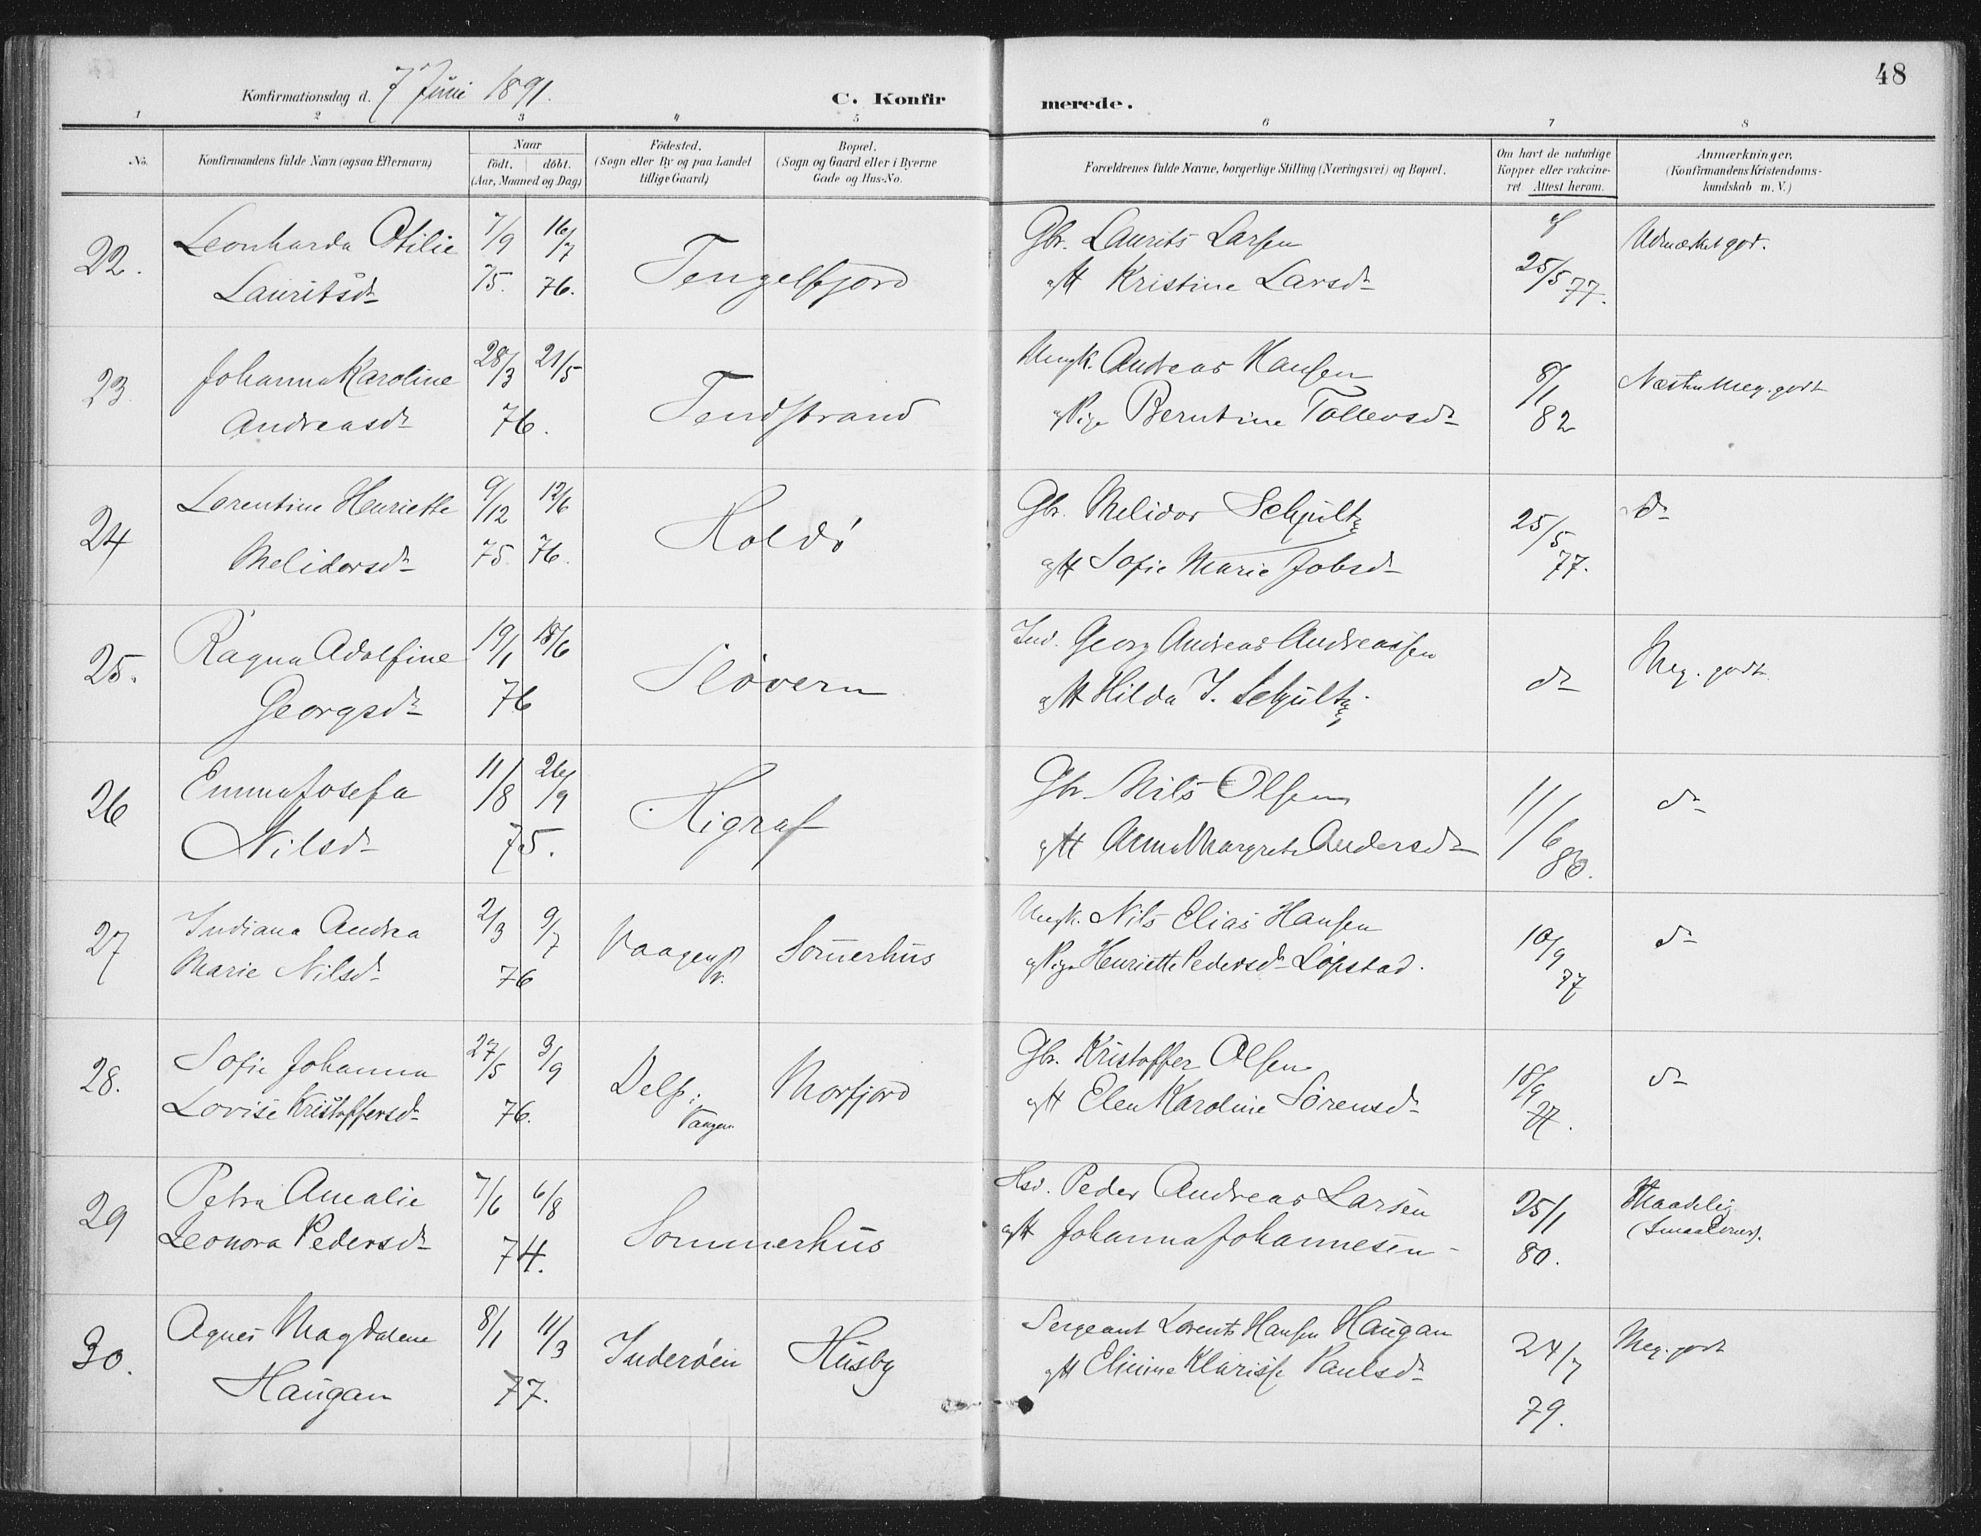 48
Konfirmationsdag d. 7 Juni 1891.
C. Konfirmerede.
1 2 3 4 5 6 7 8
No.
Konfirmandens fulde Navn (ogsaa Efternavn)
Naar
födt. döbt.
(Aar, Maaned og Dag)
Födested.
(Sogn eller By og paa Landet
tillige Gaard)
Bopæl.
(Sogn og Gaard eller i Byerne
Gade og Hus-No.
Forældrenes fulde Navne, borgerlige Stilling (Næringsvei) og Bopæl.
Om havt de naturlige
Kopper eller vakcine-
ret. Attest herom.
Anmærkninger.
(Konfirmandens Kristendoms-
kundskab m. V.)
22. Leonharda Otilie 7/9 16/7 Tengelfjord Gbr. Laurits Larsen Udmærket god.
Lauritsdr 75. 76. gft Kristine Larsdr 25/5 77.
23. Johanna Karoline 28/3 21/5 Tendstrand Ungk. Andreas Hansen 8/1 Næsten meg. godt
Andreasdr 76. og Pige Berntine Tollevsdr 82
24 Lorentine Henriette 9/12 12/6 Holdö Gbr. Melidor Schjultz 25/5 dr
Melidorsdr 75. 76. gft Sofie Marie Jobsdr 77.
25. Ragna Adolfine 19/1 18/6 Slövern Ind. Georg Andreas Andreassen dr Meg. godt
Georgsdr 76 gft Hilda J. Schjultz.
26 Emma Josefa 11/8 26/9 Higraf Gbr. Nils Olsen 11/6 dr
Nilsdr 75. gft Anna Margrete Andersdr 80.
27 Indiana Andrea 2/3 9/7 Vaagen Sommerhus Ungk. Nils Elias Hansen 10/9 dr
Marie Nilsdr 76 og Pige Henriette Pedersdr Löpstad. 77
28. Sofie Johanna 27/5 3/9 Delp: Morfjord Gbr. Kristoffer Olsen 18/9 dr
Lovise Kristoffersdr 76. Vaagen gft Elen Karoline Sörensdr 77.
29 Petra Amalie 7/6 6/8 Sommerhus Hsd. Peder Andreas Larsen 25/1 Maadelig
Leonora Pedersdr 74. gft Johanna Johannesen 80.
30. Agnes Magdalene 8/1 11/3 Inderöen Husby Sergeant Lorents Hansen Haugan 24/7 Meg. godt
Haugan 77. gft Elimine Klarisse Paulsdr 79.